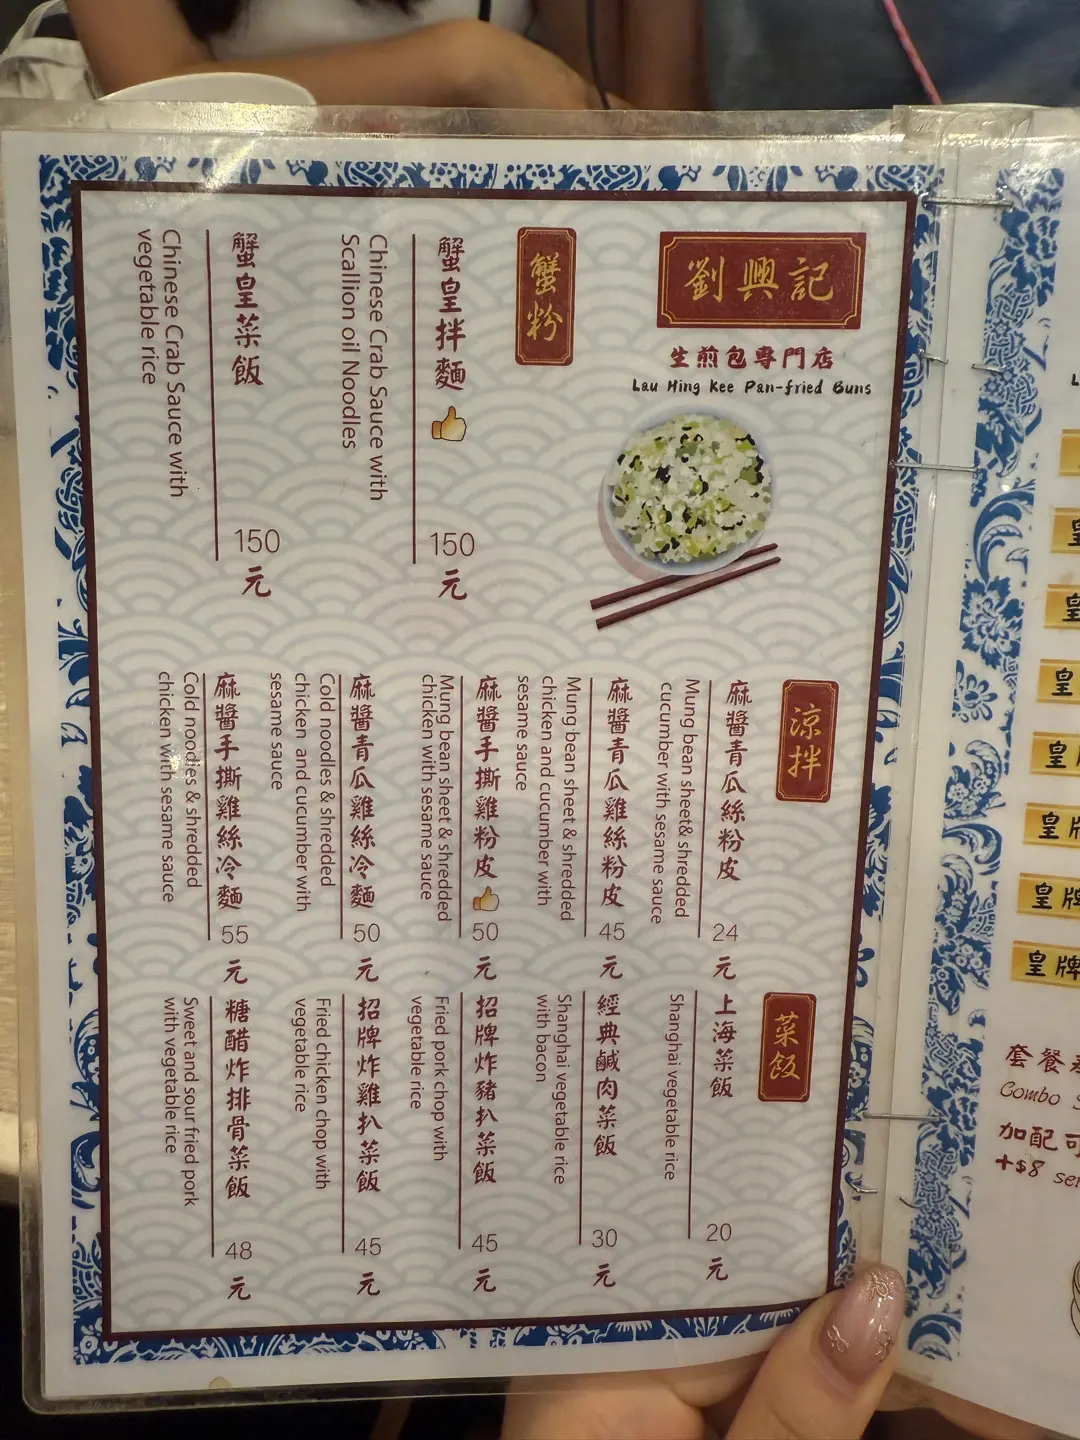 劉興記
生煎包專門店
Lau Hing Kee Pan-fried Buns
蟹粉
蟹皇拌麵
Chinese Crab Sauce with
Scallion oil Noodles
150
元
蟹皇菜飯
Chinese Crab Sauce with
vegetable rice
150
元
涼拌
麻醬青瓜絲粉皮
Mung bean sheet& shredded
cucumber with sesame sauce
24
元
麻醬青瓜雞絲粉皮
Mung bean sheet & shredded
chicken and cucumber with
sesame sauce
45
元
麻醬手撕雞粉皮
Mung bean sheet & shredded
chicken with sesame sauce
50
元
麻醬青瓜雞絲冷麵
Cold noodles & shredded
chicken and cucumber with
sesame sauce
50
元
麻醬手撕雞絲冷麵
Cold noodles & shredded
chicken with sesame sauce
55
元
菜飯
上海菜飯
Shanghai vegetable rice
20
元
經典鹹肉菜飯
Shanghai vegetable rice
with bacon
30
元
招牌炸豬扒菜飯
Fried pork chop with
vegetable rice
45
元
招牌炸雞扒菜飯
Fried chicken chop with
vegetable rice
45
元
糖醋炸排骨菜飯
Sweet and sour fried pork
with vegetable rice
48
元
皇
皇
皇
皇
皇牌
皇牌
皇牌
套餐
Combo
加配可
+$8